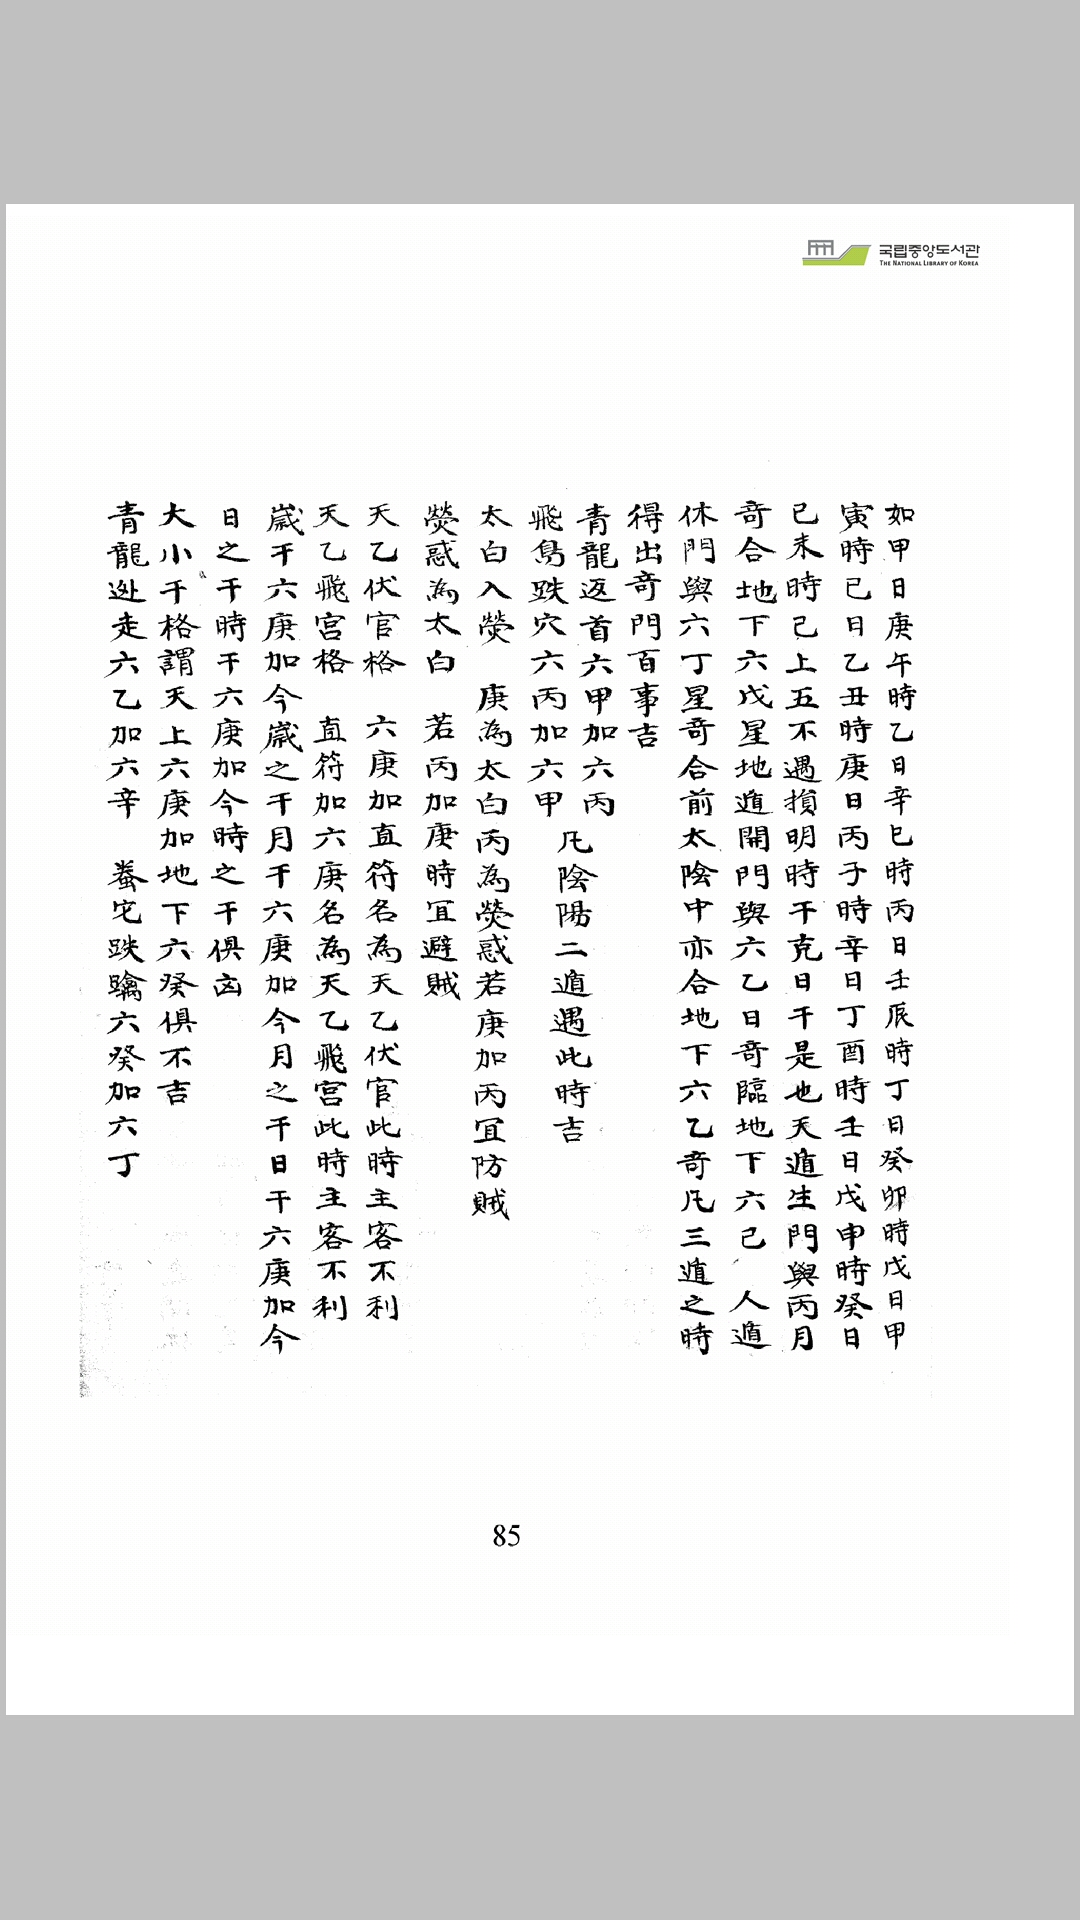 국립중앙도서관
THE NATIONAL LIBRARY OF KOREA
如甲日庚午時乙日辛巳時丙日壬辰時丁日癸卯時戊日甲
寅時己日乙丑時庚日丙子時辛日丁酉時壬日戊申時癸日
己未時已上五不遇損明時干克日干是也天遁生門與丙月
奇合地下六戊星地遁開門與六乙日奇臨地下六己 人遁
休門與六丁星奇合前太陰中亦合地下六乙奇凡三遁之時
得出奇門百事吉
青龍返首六甲加六丙
飛鳥跌穴六丙加六甲
凡陰陽二遁遇此時吉
太白入熒 庚為太白丙為熒惑若庚加丙宜防賊
熒惑為太白 若丙加庚時宜避賊
天乙伏官格 六庚加直符名為天乙伏官此時主客不利
天乙飛宮格 直符加六庚名為天乙飛宮此時主客不利
歲干六庚加今歲之干月干六庚加今月之干日干六庚加今
日之干時干六庚加今時之干俱凶
大小干格謂天上六庚加地下六癸俱不吉
青龍逃走六乙加六辛 螣宅跌驕六癸加六丁
85